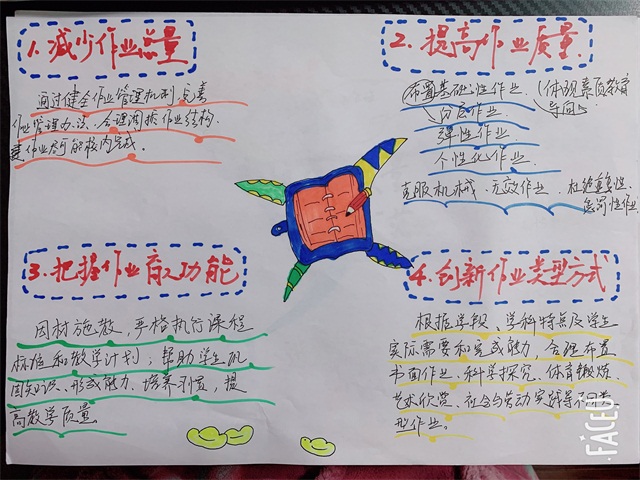 1.减少作业总量
通过健全作业管理机制,完善
作业管理办法、合理调控作业结构
作业尽可能校内完成。
2.提高作业质量.
布置基础性作业(体现素质教育
导向)
分层作业
弹性作业
个性化作业
克服机械、无效作业、杜绝重复性、
惩罚性作业
3.把握作业育人功能
因材施教,严格执行课程
标准和教学计划;帮助学生巩
固知识、形成能力、培养习惯,提
高教学质量。
4.创新作业类型方式
根据学段、学科特点及学生
实际需要和完成能力,合理布置
书面作业、科学探究、体育锻炼
艺术欣赏、社会与劳动实践等不同类
型作业。
FACEU